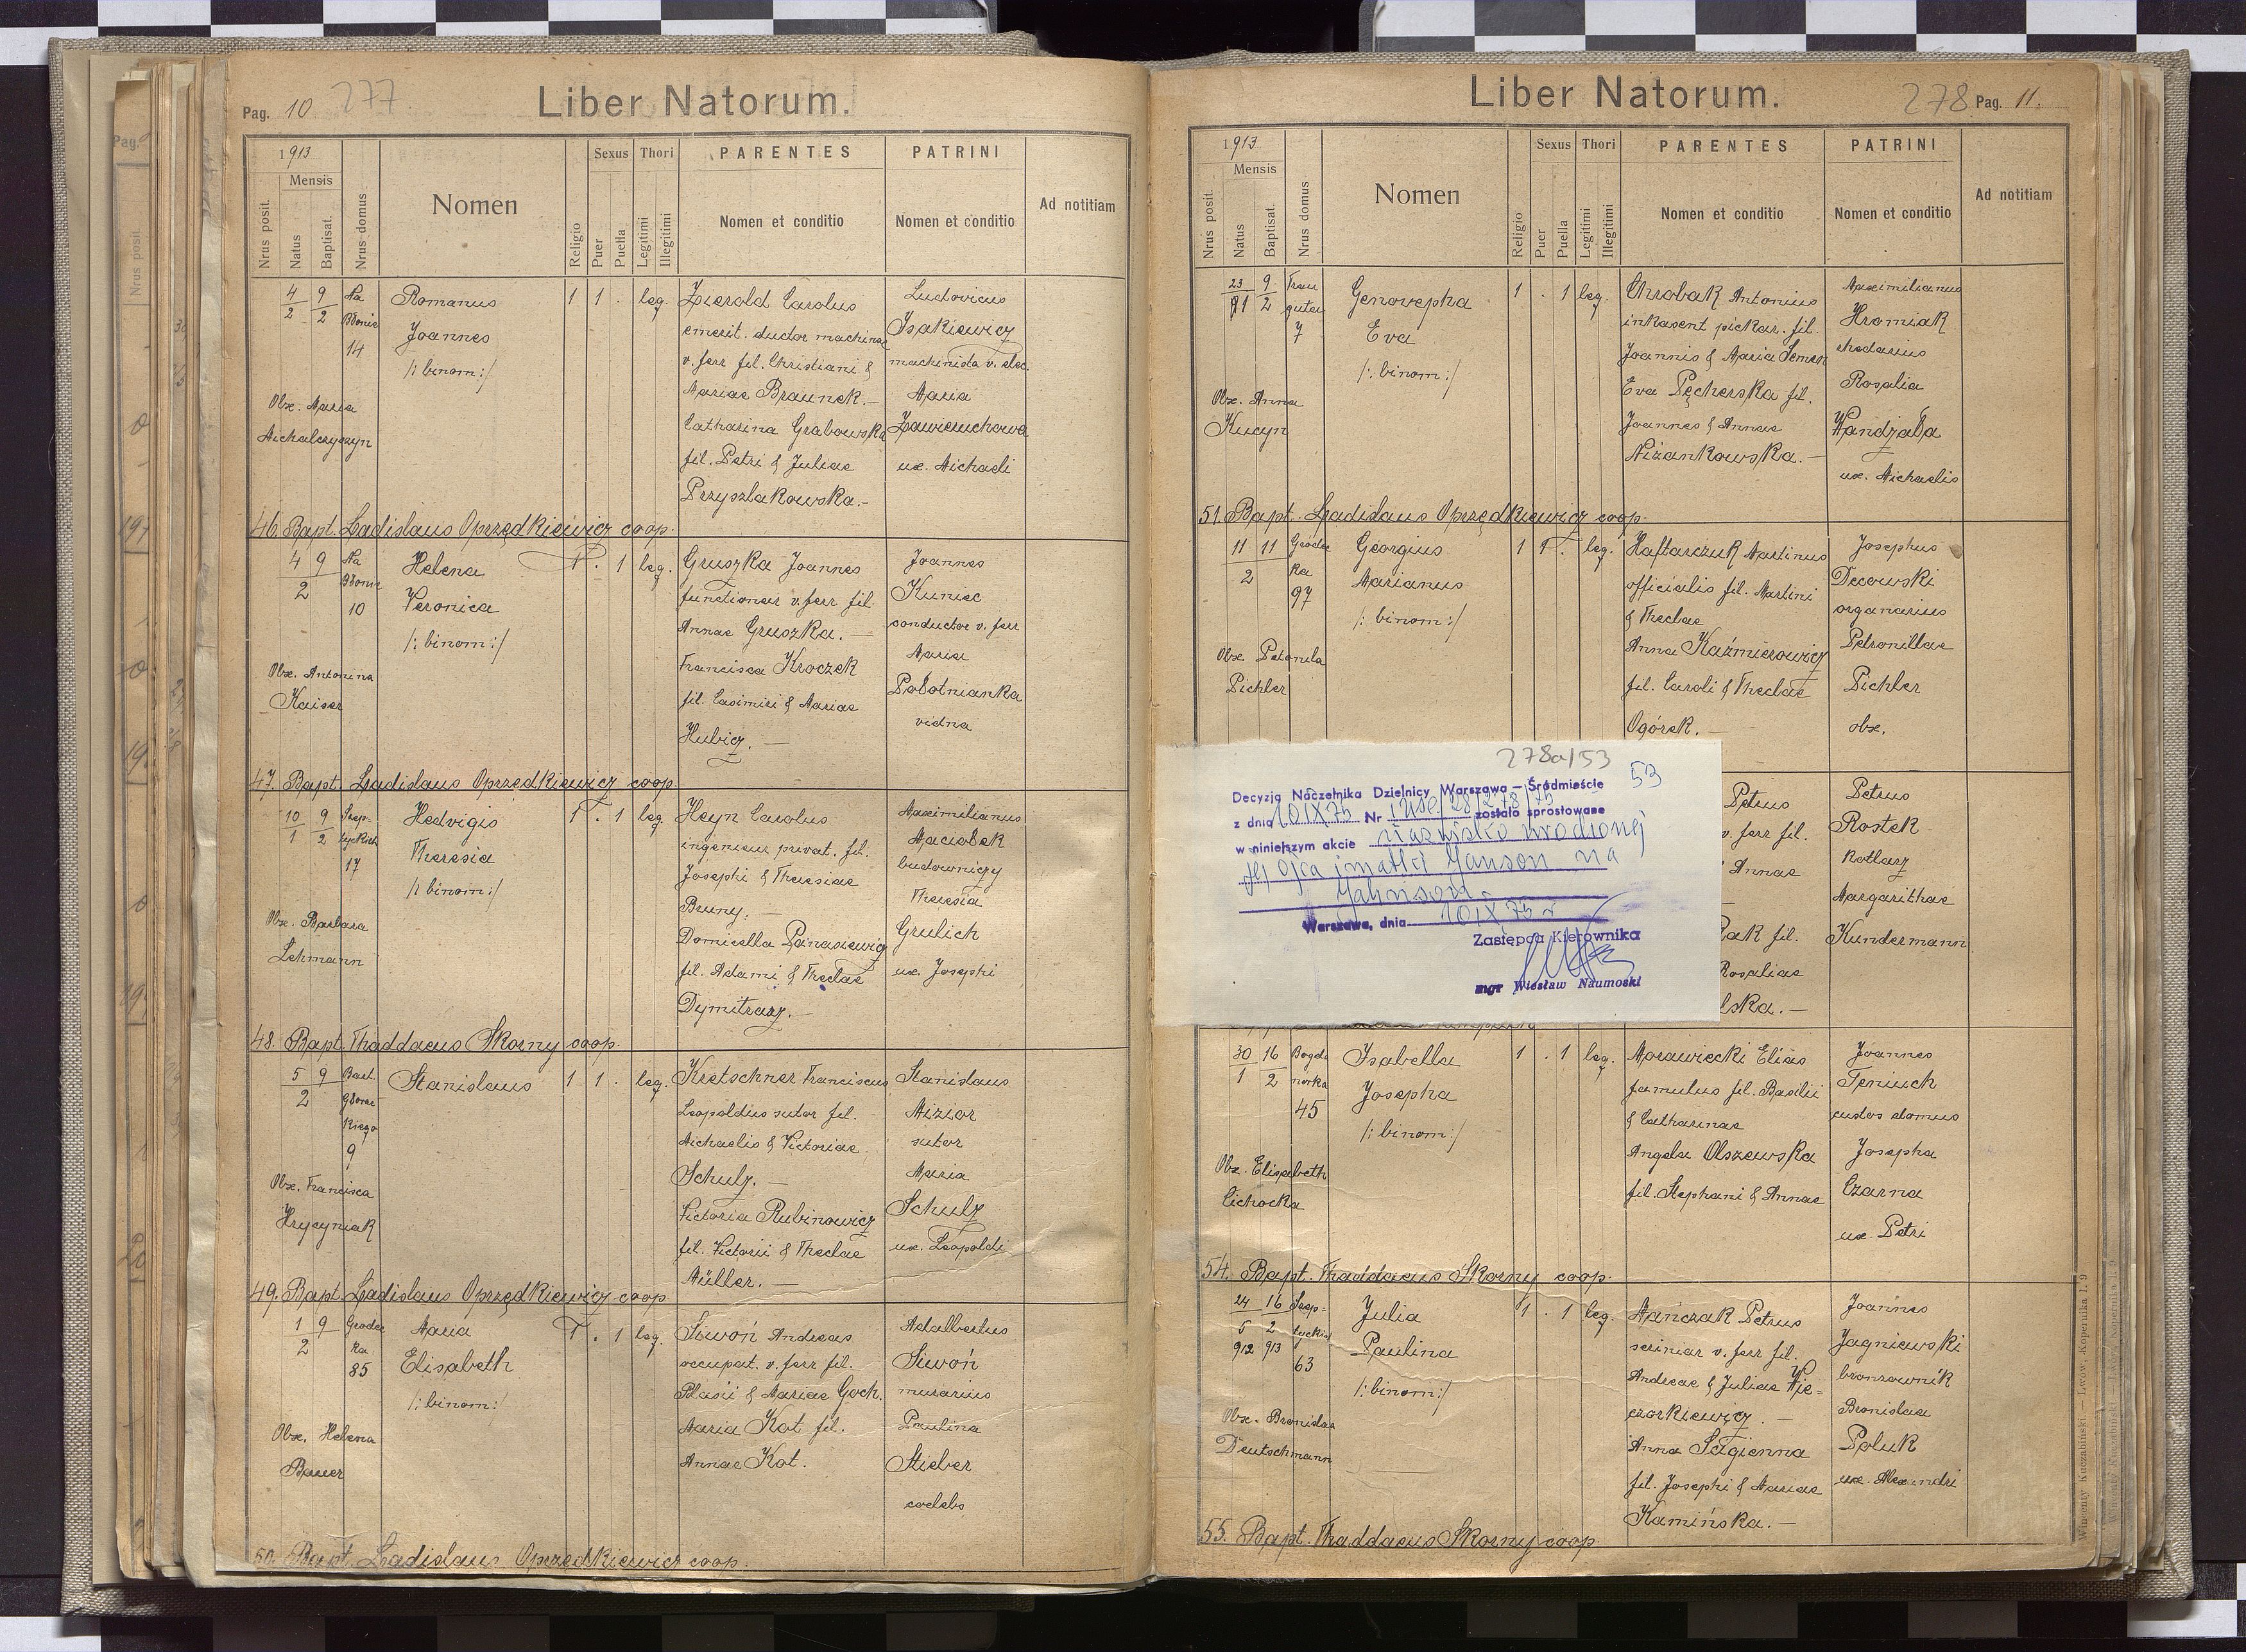 Pag. 10 277
Liber Natorum.
1913
Mensis
Nrus posit.
Natus
Baptisat.
Nrus domus
Nomen
Religio
Sexus
Puer
Puella
Thori
Legitimi
Illegitimi
PARENTES
Nomen et conditio
PATRINI
Nomen et conditio
Ad notitiam
4/2 9/2 Na
Błonie
14
Romanus
Joannes
/: binom :/
1 1 . leg.
Obx. Maria
Michalczyszyn
Zierold Carolus
emerit. ductor machinae
v. ferr fil. Christiani &
Mariae Braunek.—
Catharina Grabowska
fil. Petri & Juliae
Przyszlakowska.—
Ludovicus
Isakiewicz
machinista v. elec.
Maria
Zawieruchowa
ux. Michaeli
46. Bapt. Ladislaus Oprzędkiewicz coop.
4 9
2
Na
Błonie
10
Helena
Veronica
/: binom :/
1 . 1 leg.
Obx. Antonina
Kaiser
Gruszka Joannes
functionar v. ferr fil.
Annae Gruszka. —
Francisca Kroczek
fil. Casimiri & Mariae
Hubicz. —
Joannes
Kuniec
conductor v. ferr
Maria
Pałotnianka
vidna
47. Bapt. Ladislaus Oprzędkiewicz coop.
10/1 9/2 Szep-
tyckich
17
Hedvigis
Theresia
/: binom :/
1 . 1 leg.
Obx. Barbara
Lehmann
Heyn Carolus
ingenieur privat. fil.
Josephi & Theresiae
Bruny. —
Domicella Panasiewicz
fil. Adami & Theclae
Dymitrasz. —
Maximilianus
Maciałek
budowniczy
Theresia
Grulich
ux. Josephi
48. Bapt. Thaddaeus Skorny coop.
5 9
2
Bart.
Głowac
kiego
9
Stanislaus
1 1 . leg.
Obx. Francisca
Hrycyniak
Kretschner Franciscus
Leopoldius sutor fil.
Michaelis & Victoriae
Schulz. —
Victoria Rubinowicz
fil. Victorii & Theclae
Müller. —
Stanislaus
Mizior
sutor
Maria
Schulz
ux. Leopoldi
49. Bapt. Ladislaus Oprzędkiewicz coop.
1 9
2
Grodec
ka
85
Maria
Elisabeth
/: binom :/
1 . 1 leg.
Obx. Helena
Bauer
Siwoń Andreas
occupat. v. ferr fil.
Blasii & Mariae Goch.
Maria Kot fil.
Annae Kot.
Adalbertus
Siwoń
murarius
Paulina
Stieber
coelebs
50. Bapt. Ladislaus Oprzędkiewicz coop.
Liber Natorum.
278 Pag. 11.
1913
Mensis
Nrus posit.
Natus
Baptisat.
Nrus domus
Nomen
Religio
Sexus
Puer
Puella
Thori
Legitimi
Illegitimi
PARENTES
Nomen et conditio
PATRINI
Nomen et conditio
Ad notitiam
23 9/2 Trau
gutta
7
Genovepha
Eva
/: binom :/
1 . 1 leg.
Obx. Anna
Kucyn
Chrobak Antonius
inkasent piekar. fil.
Joannis & Maria Semen
Eva Pęcherska fil.
Joannes & Annae
Niżankowska. —
Maximilianus
Hromiak
rhedarius
Rosalia
Wandzała
ux. Michaelis
51. Bapt. Ladislaus Oprzędkiewicz coop.
11 11
2
Grodec
ka
97
Georgius
Marianus
/: binom :/
1 1 . leg.
Obx. Petronila
Pichler
Haftarczuk Martinus
officialis fil. Martini
& Theclae
Anna Kaźmierowicz
fil. Caroli & Theclae
Ogórek. —
Josephus
Decowski
organarius
Petronillae
Pichler
obx.
278a/53
53
Decyzją Naczelnika Dzielnicy Warszawa — Śródmieście
z dnia 10 IX 75 Nr zostało sprostowane
w niniejszym akcie nazwisko urodzonej
jej ojca i matki Janson na
Jahnson.
Warszawa, dnia 10 IX 75 r
Zastępca Kierownika
mgr Wiesław Naumoski
Petrus
v. ferr fil.
Annae
ak fil.
Rosaliae
lska. —
Petrus
Rostek
kotlarz
Margarithae
Kundermann
30/1 16/2 Bogda
nowka
45
Isabella
Josepha
/: binom :/
1 . 1 leg.
Obx. Elisabeth
Cichocka
Morawiecki Elias
famulus fil. Basilii
& Catharinae
Angela Olszewska
fil. Stephani & Annae
Joannes
Teniuch
custos domus
Josepha
Czarna
ux. Petri
54. Bapt. Thaddaeus Skorny coop.
24 16 Szep-
5 2 tyckich
912 913 63
Julia
Paulina
/: binom :/
1 . 1 leg.
Obx. Bronislaa
Deutschmann
Mańczak Petrus
scriniar v. ferr fil.
Andreae & Juliae Wie-
czorkiewicz. —
Anna Sagienna
fil. Josephi & Mariae
Kamińska. —
Joannes
Jagniewski
bronzownik
Bronislaa
Poluk
ux. Alexandri
55. Bapt. Thaddaeus Skorny coop.
Wincenty Kuczabiński — Lwów, Kopernika l. 9